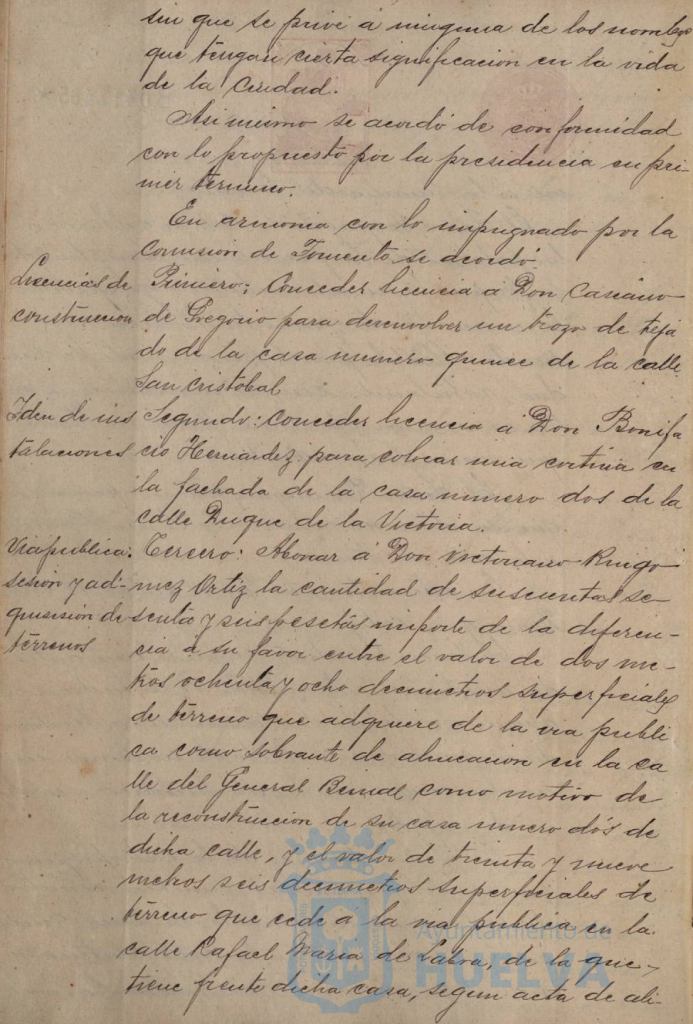 sin que se prive á ninguna de los nombres
que tengan cierta significacion en la vida
de la Ciudad.
Asi mismo se acordó de conformidad
con lo propuesto por la presidencia en pri-
mer termino.
En armonia con lo impugnado por la
Comision de Fomento se acordó
Licencias de
construccion
Primero; Conceder licencia a Don Casiano
de Gregorio para desenvolver un trozo de teja
do de la casa numero quince de la calle
San Cristobal
Iden de ins
talaciones
Segundo: Conceder licencia a Don Bonifa
cio Hernandez para colocar una cortina en
la fachada de la casa numero dos de la
calle Duque de la Victoria.
Via publica.
sesion y ad-
quisision de
terrenos
Tercero: Abonar á Don Victoriano Ruigo
mez Ortiz la cantidad de se-
senta y seis pesetas importe de la diferen-
cia á su favor entre el valor de dos me-
tros ochenta y ocho decimetros superficiales
de terreno que adquiere de la via publi
ca como sobrante de alineacion en la ca
lle del General Bernal como motivo de
la reconstruccion de su casa numero dos de
dicha calle, y el valor de treinta y nueve
metros seis decimetros superficiales de
terreno que cede á la via publica en la
calle Rafael Maria de Labra, de la que
tiene frente dicha casa, segun acta de ali-
Ayuntamiento de
HUELVA